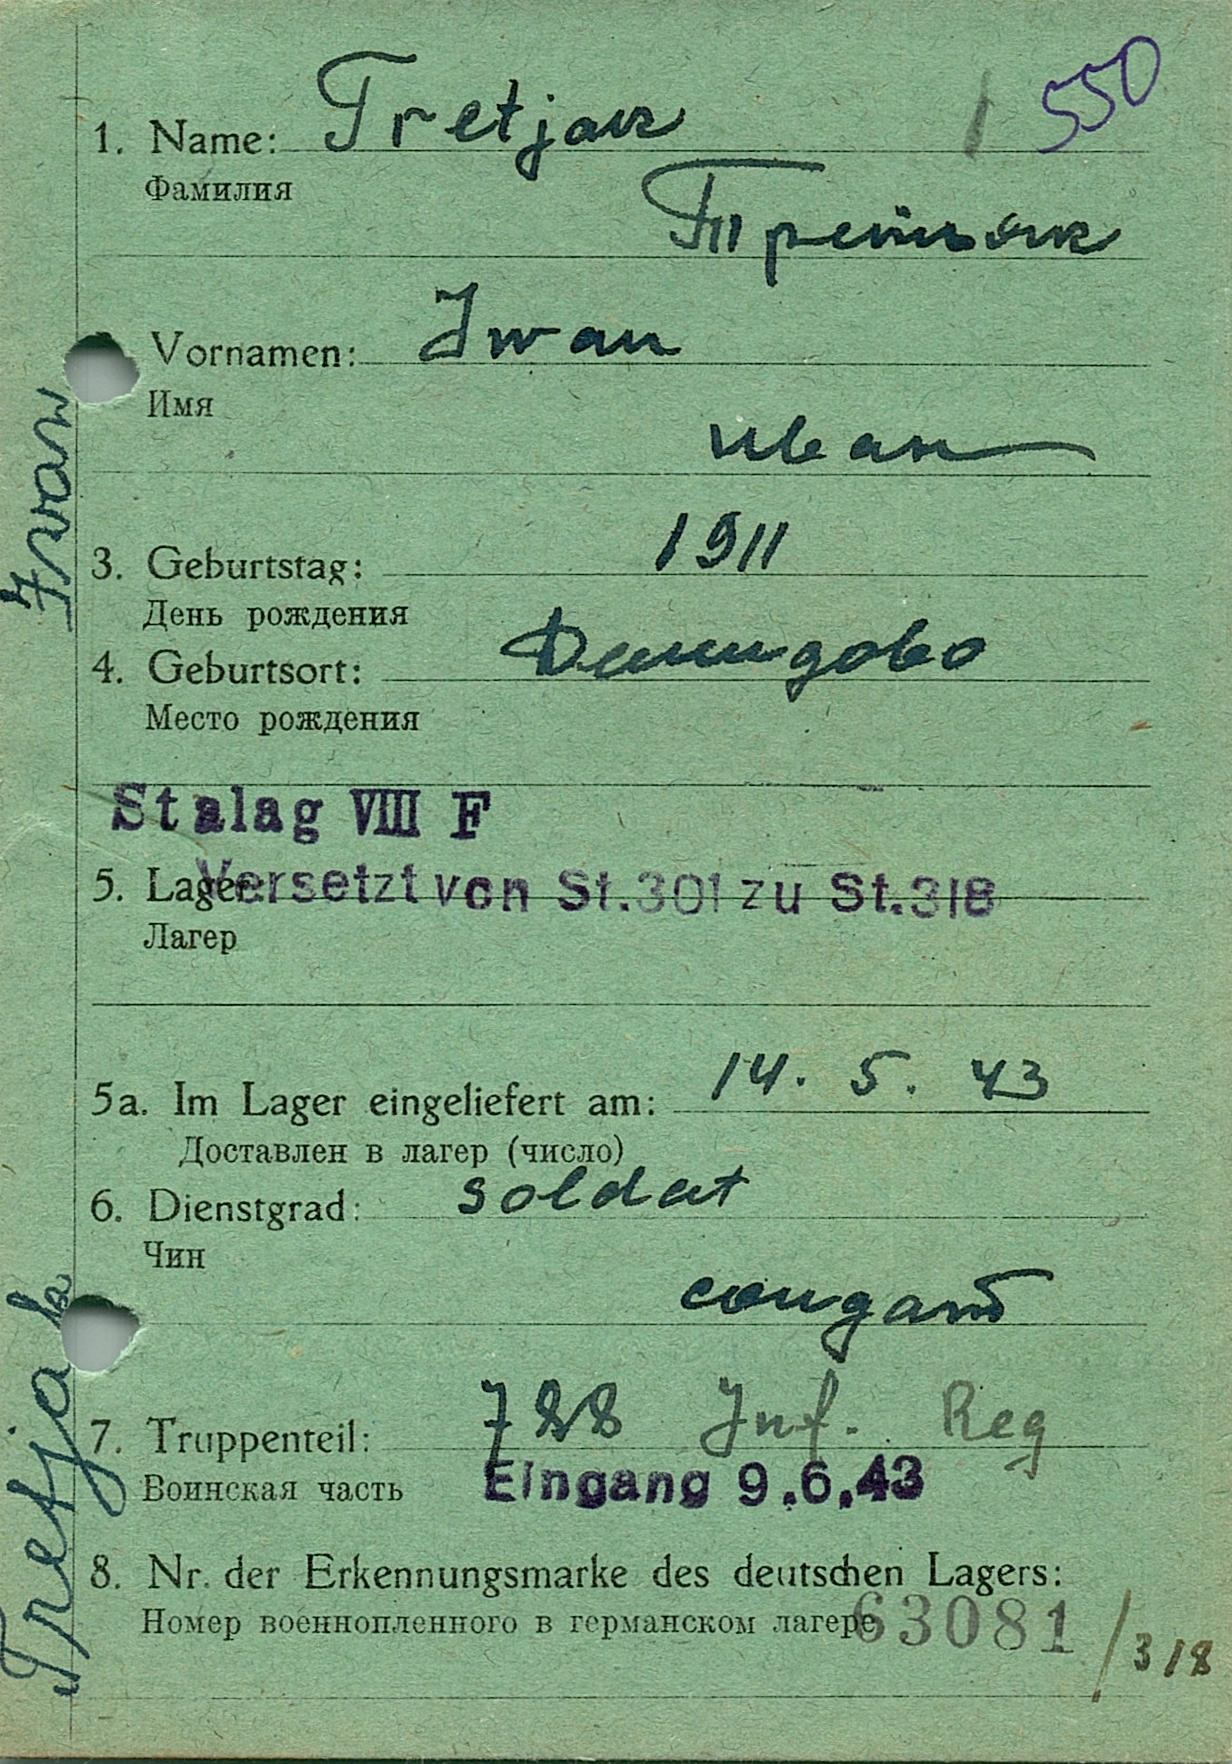 550
1. Name: Tretjak
Фамилия
Третьяк
Vornamen: Iwan
Имя
иван
3. Geburtstag: 1911
День рождения
4. Geburtsort: Демидово
Место рождения
Stalag VIII F
5. Lager: Versetzt von St.301 zu St.318
Лагер
5a. Im Lager eingeliefert am: 14. 5. 43
Доставлен в лагер (число)
6. Dienstgrad: soldat
Чин
солдат
7. Truppenteil: 788 Inf. Reg
Воинская часть Eingang 9.6.43
8. Nr. der Erkennungsmarke des deutschen Lagers:
Номер военнопленного в германском лагере 63081/318
Tretjak Iwan